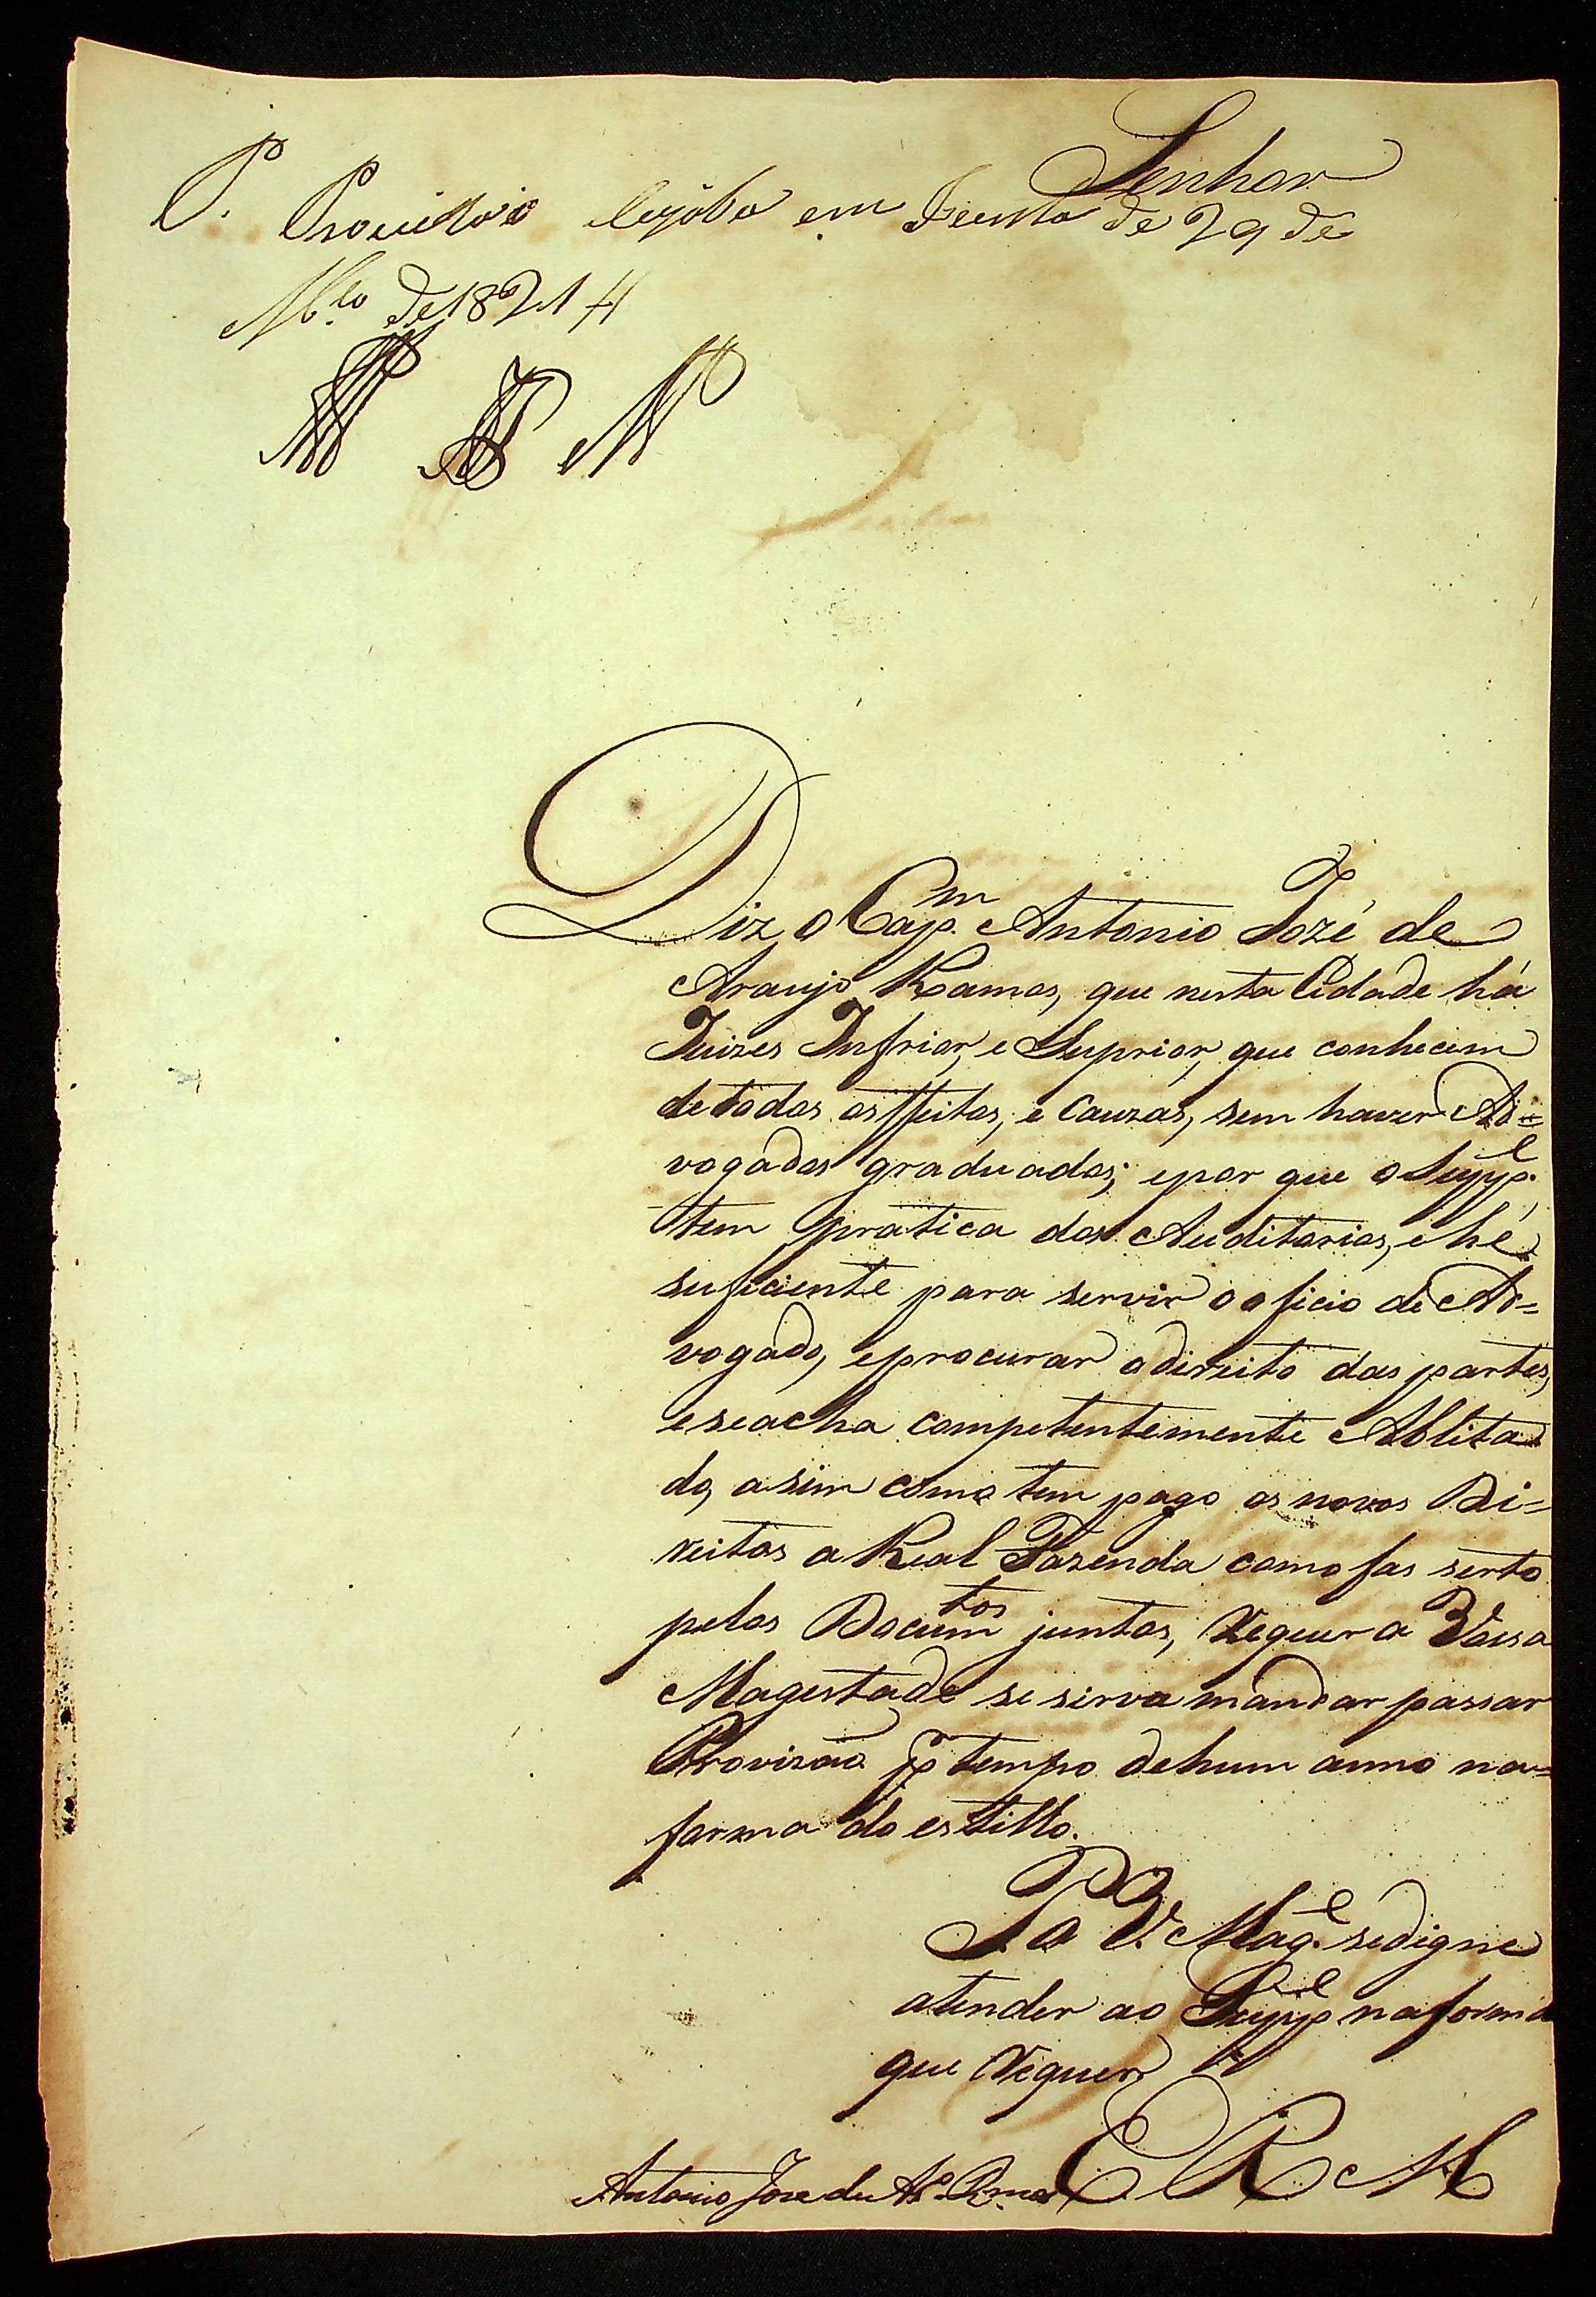 Senhor
P. Provizão em Junta de 29 de
M.ço de 1821
Diz o Cap.m Antonio Jozé de
Araujo Ramos, que nesta Cidade há
Juizes Infrior, e Suprior, que conhecem
de todos os ffeitos, e Cauzas, sem haver Ad=
vogados graduados; e por que o Supp.e
tem pratica dos Auditorios, e hé
suficiente para servir o oficio de Ad=
vogado, e procurar o direito das partes,
e se acha competentemente Ablita
do, asim como tem pago os novos Di=
reitos a Real Fazenda como fas serto
pelos Docum.tos juntos, Requer a Vossa
Magestade se sirva mandar passar
Provizão p.r tempo de hum anno na=
forma do estillo.
P. a V. Mag.e se digne
atender ao Supp.e na forma
que Requer
E R M
Antonio Joze de Ar.o Ramos